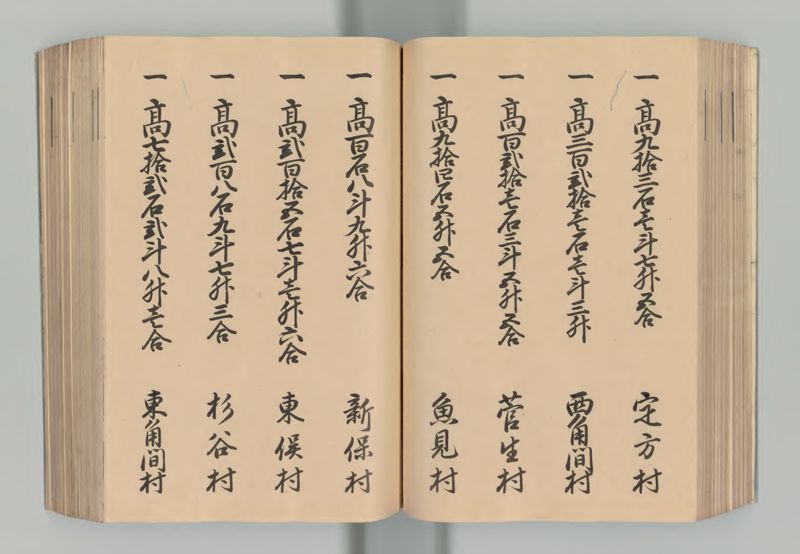 一 高九拾三石壱斗七升五合 定方村
一 高三百弐拾壱石壱斗三升 西角間村
一 高百弐拾壱石三斗五升五合 菅生村
一 高九拾四石五升五合 魚見村
一 高百石八斗九升六合 新保村
一 高弐百拾五石七斗壱升六合 東俣村
一 高弐百八石九斗七升三合 杉谷村
一 高七拾弐石弐斗八升壱合 東角間村